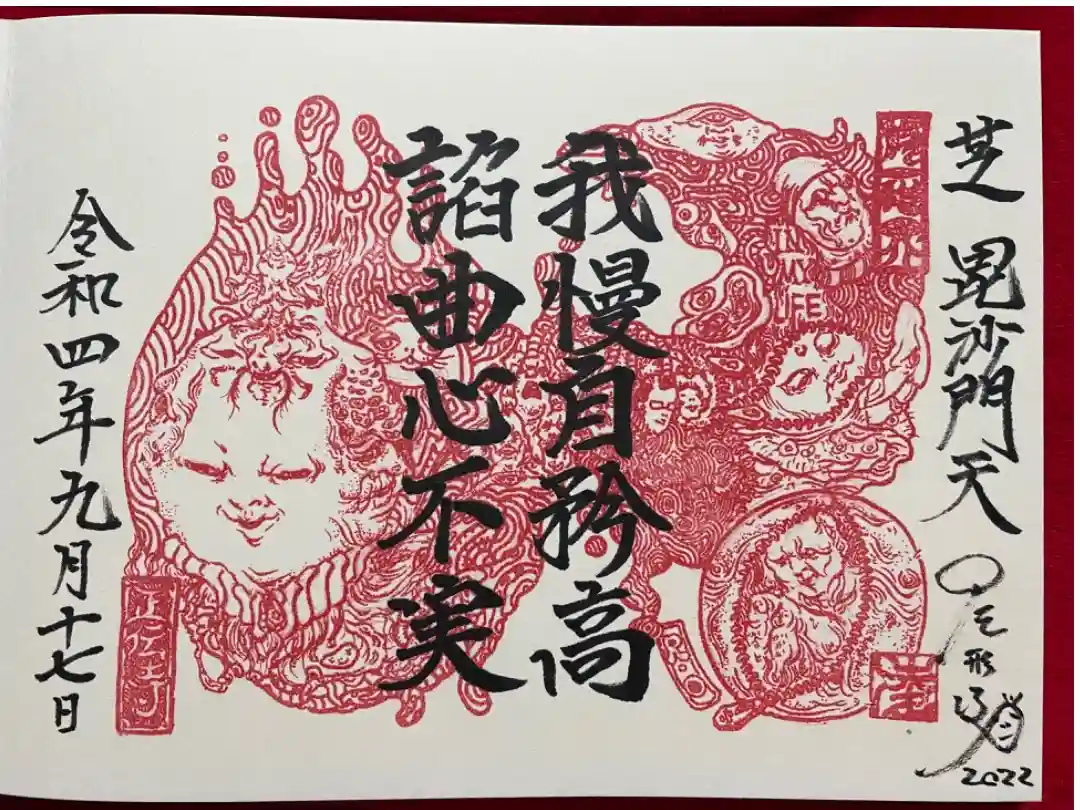 芝 毘沙門天
我慢自矜高
諂曲心不実
令和四年九月十七日
IN
MY
LIFE
2022